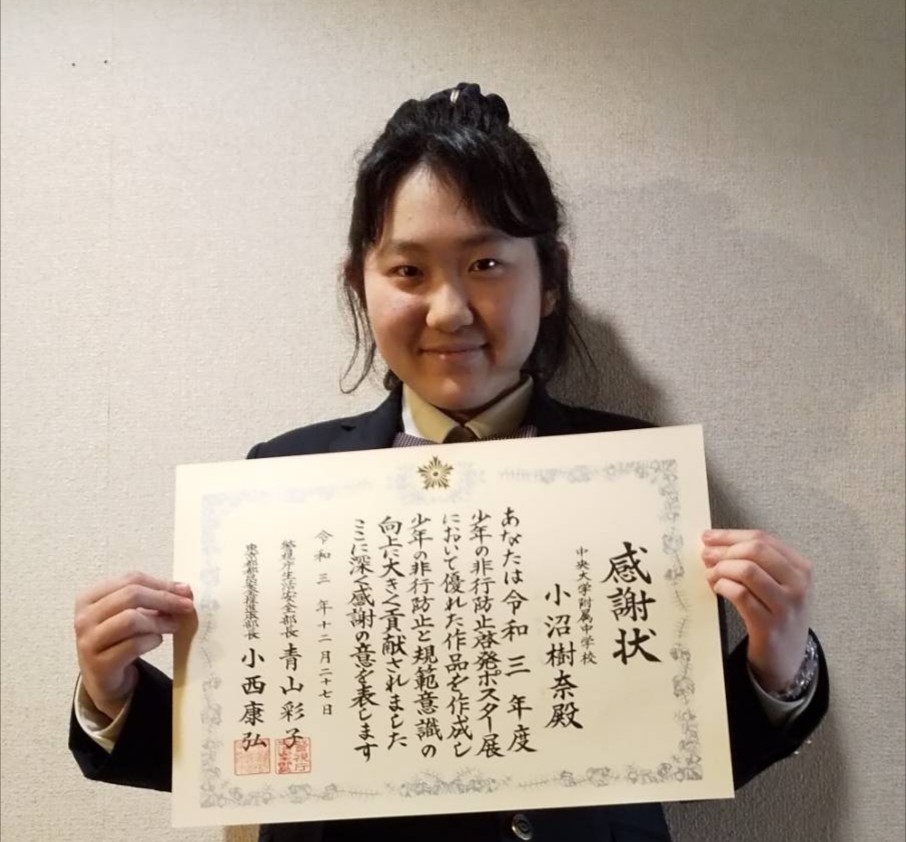 感謝状
中央大学附属中学校
小沼樹奈殿
あなたは令和三年度
少年の非行防止啓発ポスター展
において優れた作品を作成し
少年の非行防止と規範意識の
向上に大きく貢献されました
ここに深く感謝の意を表します
令和三年十二月二十七日
警視庁生活安全部長 青山彩子
小西康弘